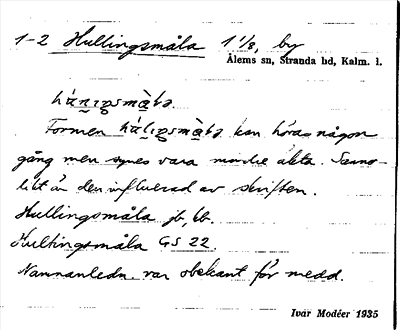 1-2 Hullingsmåla 1 1/8, by
Ålems sn, Stranda hd, Kalm. l.
Formen kan höras någon
gång men synes vara mindre äkta. Sanno-
likt är den influerad av skriften.
Hullingsmåla jb, bb.
Hultingsmåla GS 22
Namnanledn. var obekant för medd.
Ivar Modéer 1935